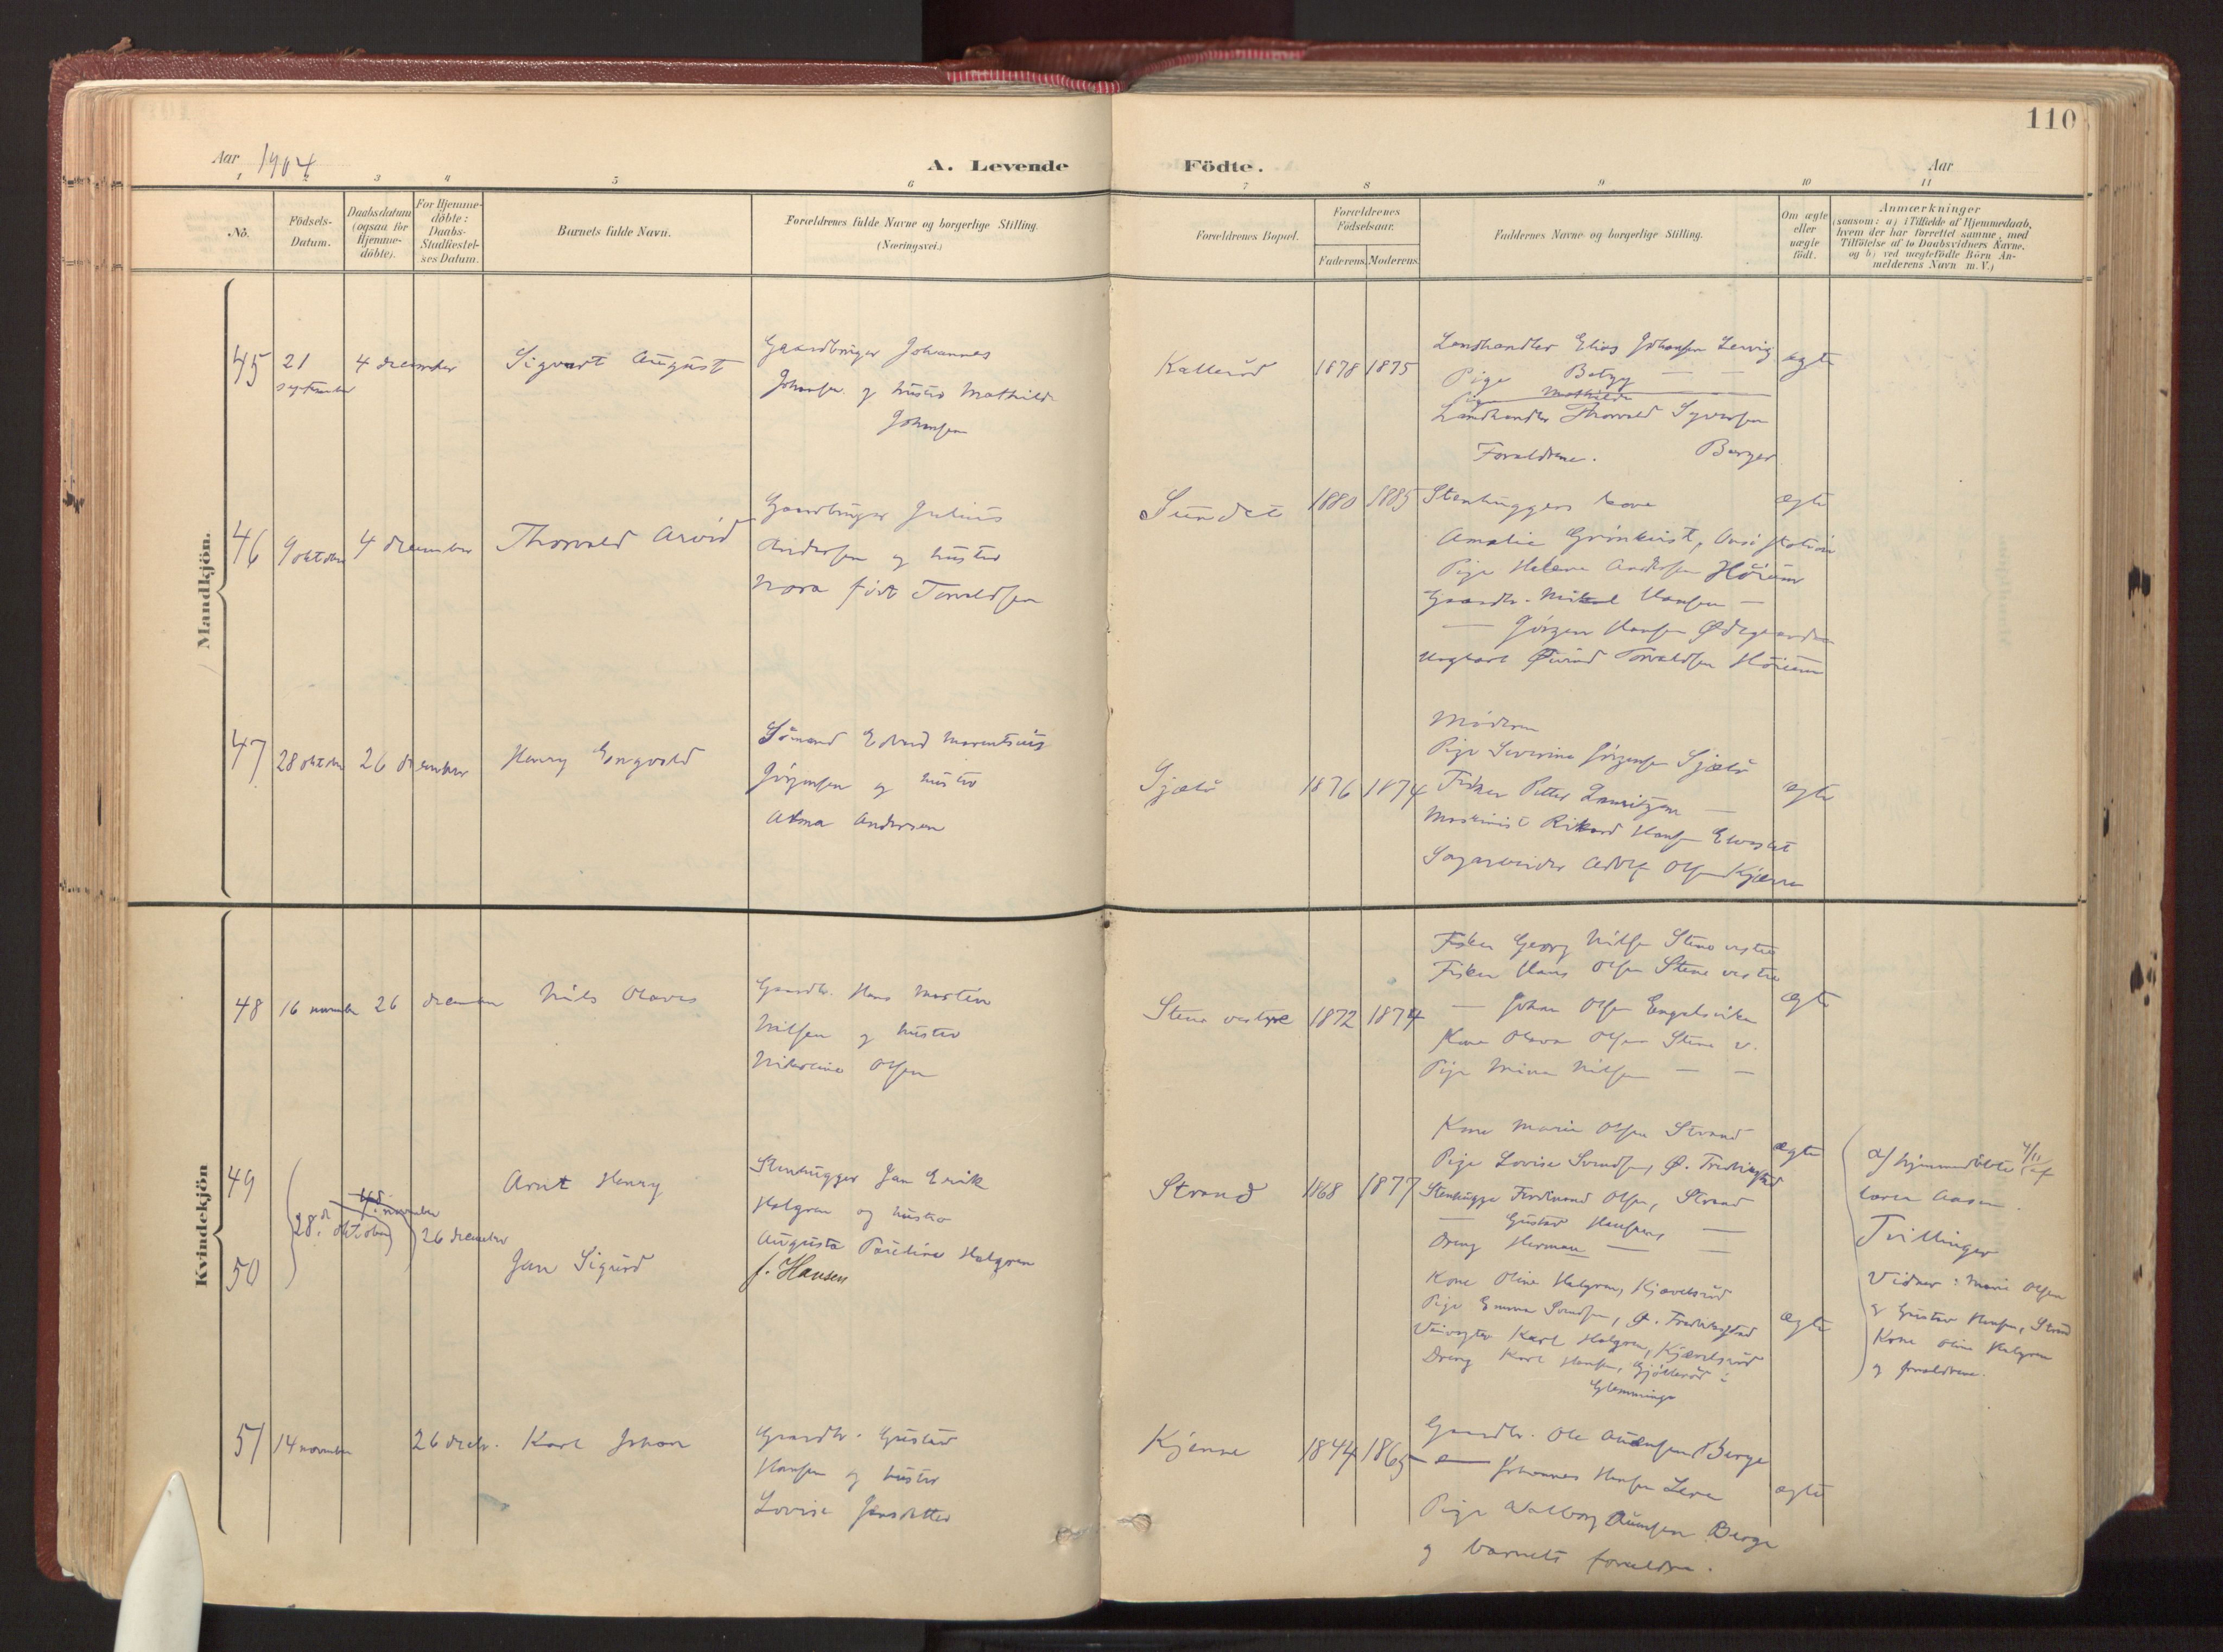 110
Aar 1904
A. Levende Födte.
Aar
1 2 3 4 5 6 7 8 9 10 11
No.
Födsels-Datum.
Daabsdatum (ogsaa for Hjemme-döbte).
For Hjemme-döbte: Daabs-Stadfæstel-ses Datum.
Barnets fulde Navn.
Forældrenes fulde Navne og borgerlige Stilling.
(Næringsvei.)
Forældrenes Bopæl.
Forældrenes Födselsaar.
Faderens. Moderens.
Faddernes Navne og borgerlige Stilling.
Om ægte eller uægte födt.
Anmærkninger
(saasom: a) i Tilfælde af Hjemmedaab,
hvem der har forrettet samme, med
Tilföielse af to Daabsvidners Navne,
og b) ved uægtefödte Börn An-
melderens Navn m. V.)
Mandkjön.
45 21 september 4 december Sigvart August
Gaardbruger Johannes
Johansen og hustru Mathilde
Johansen
Kallerød 1878 1875
Landhandler Elias Johansen Lervig
Pige Betzy — —
Pige Mathilde
Landhandler Thorvald Syversen
Forældrene. Borger
ægte
46 9 oktober 4 december Thorvald Arvid
Gaardbruger Julius
Andersen og hustru
Nora født Torvaldsen
Sundet 1880 1885
Stenhuggers kone
Amalie Grönkvist,
Pige Helene Andersen Höium
Gaardbr. Mikal Hansen —
— Jörgen Hansen Ödegaarden
Ungkarl Øivind Torvaldsen Höium
ægte
47 28 oktober 26 december Henry Engvald
Sømand Edvard Marentsius
Jörgensen og hustru
Alma Andersen
Sjælö 1876 1874
Moderen
Pige Severine Jörgensen Sjælö
Fisker Petter Lauritzen —
Maskinist Rikard Hansen
Sagarbeider Adolf Olsen Kjærre
ægte
Kvindekjön
48 16 november 26 december Nils Olaves
Gaardbr. Hans Martin
Nilsen og hustru
Nikoline Olsen
Stene vestre 1872 1874
Fisker Georg Nilsen Stene vestre
Fisker Hans Olsen Stene vestre
— Johan Olsen Engelsviken
Kone Olava Olsen Stene v.
Pige Mina Nilsen — —
ægte
49 Arnt Henry
28de oktober
4de november
26 december
50 Jan Sigurd
Stenhugger Jan Erik
Halgren og hustru
Augusta Pauline Halgren
f. Hansen
Strand 1868 1877
Kone Marie Olsen Strand
Pige Lovise Svendsen, Ø. Fredrikstad
Stenhugger Ferdinand Olsen, Strand
— Gustav Hansen, —
Dreng Herman — —
ægte
Kone Oline Halgren, Kjævelsröd
Pige Emma Svendsen, Ø. Fredrikstad
Veivogter Karl Halgren, Kjævelsröd
Dreng Karl Hansen, Gjölleröd i
Glemminge
ægte
hjemmedöbte 4/11 af
lærer Aasen.
Tvillinger
Vidner: Marie Olsen
og Gustav Hansen, Strand
Kone Oline Halgren
og forældrene.
51 14 november 26 decbr. Karl Johan
Gaardbr. Gustav
Hansen og hustru
Lovise Jensdatter
Kjenne 1844 1865
Gaardbr. Ole Auensen Berge
— Johannes Hansen Lera
Pige Valborg Auensen Berge
og barnets forældre.
ægte